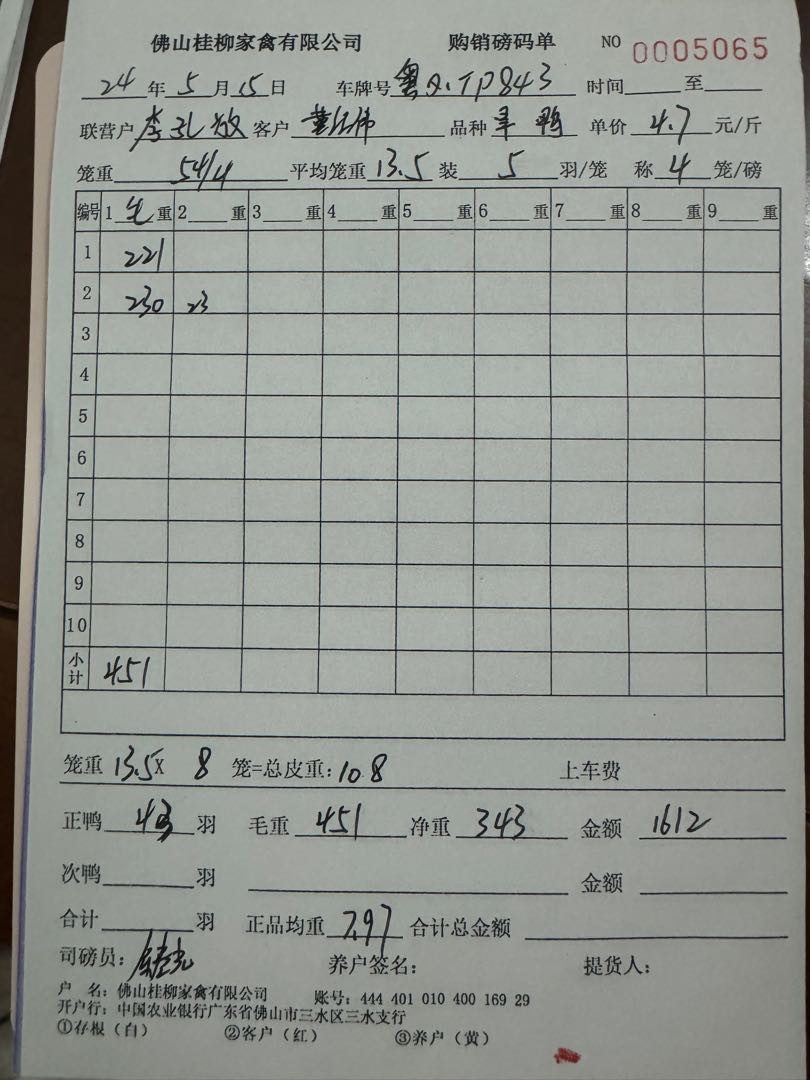 佛山桂柳家禽有限公司 购销磅码单 NO 0005065
24 年 5 月 15 日 车牌号 粤A·TP843 时间 至
联营户 李孔敏 客户 单价 4.7 元/斤 品种
笼重 54/4 平均笼重 13.5 装 5 羽/笼 称 4 笼/磅
编号 1 毛 重 2 重 3 重 4 重 5 重 6 重 7 重 8 重 9 重
1 221
2 230 23
3
4
5
6
7
8
9
10
小计 451
笼重 13.5X 8 笼=总皮重: 108 上车费
正鸭 43 羽 毛重 451 净重 343 金额 1612
次鸭 羽 金额
合计 羽 正品均重 7.97 合计总金额
司磅员: 养户签名: 提货人:
户 名: 佛山桂柳家禽有限公司 账号: 444 401 010 400 169 29
开户行: 中国农业银行广东省佛山市三水区三水支行
①存根(白) ②客户(红) ③养户(黄)